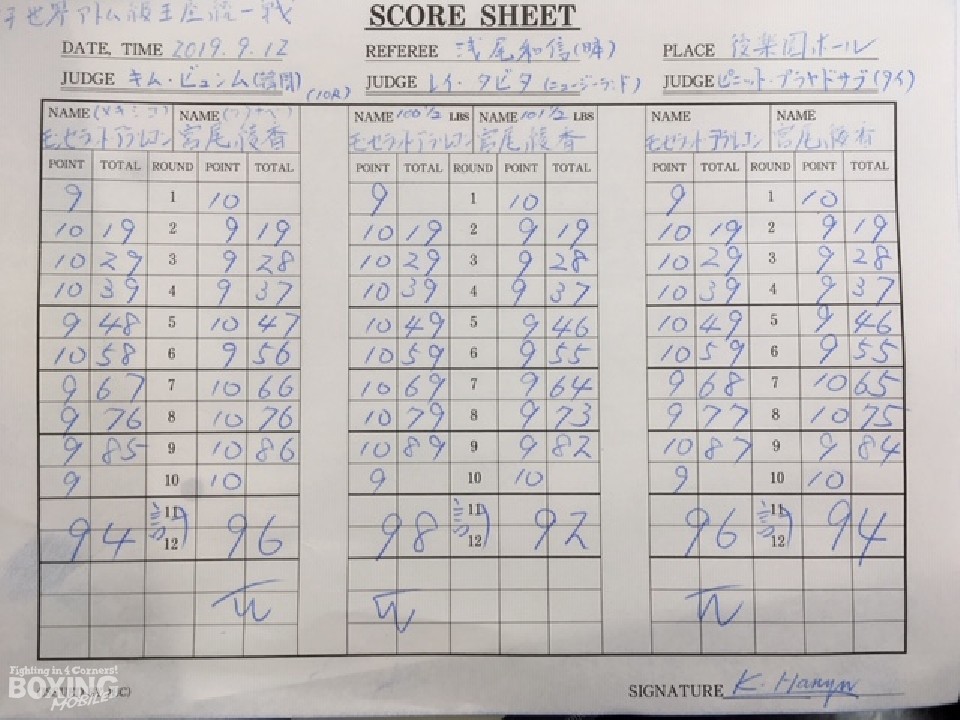 世界アトム級王座統一戦
SCORE SHEET
DATE, TIME 2019.9.12 REFEREE 浅尾和信 PLACE 後楽園ホール
JUDGE キム・ビュンム(韓国) (10R) JUDGE レイ・タビタ(ニュージーランド) JUDGE ピニット・プラヤドサブ(タイ)
NAME (メキシコ) NAME NAME 100 1/2 LBS NAME 101 1/2 LBS NAME NAME
モンセラット・アラルコン 宮尾綾香 モンセラット・アラルコン 宮尾綾香 モンセラット・アラルコン 宮尾綾香
POINT TOTAL ROUND POINT TOTAL POINT TOTAL ROUND POINT TOTAL POINT TOTAL ROUND POINT TOTAL
9 1 10 9 1 10 9 1 10
10 19 2 9 19 10 19 2 9 19 10 19 2 9 19
10 29 3 9 28 10 29 3 9 28 10 29 3 9 28
10 39 4 9 37 10 39 4 9 37 10 39 4 9 37
9 48 5 10 47 10 49 5 9 46 10 49 5 9 46
10 58 6 9 56 10 59 6 9 55 10 59 6 9 55
9 67 7 10 66 10 69 7 9 64 9 68 7 10 65
9 76 8 10 76 10 79 8 9 73 9 77 8 10 75
9 85 9 10 86 10 89 9 9 82 10 87 9 9 84
9 10 10 9 10 10 9 10 10
94 計 11 12 96 98 計 11 12 92 96 計 11 12 94
W W W
Fighting in 4 Corners!
BOXING
MOBILE
SIGNATURE